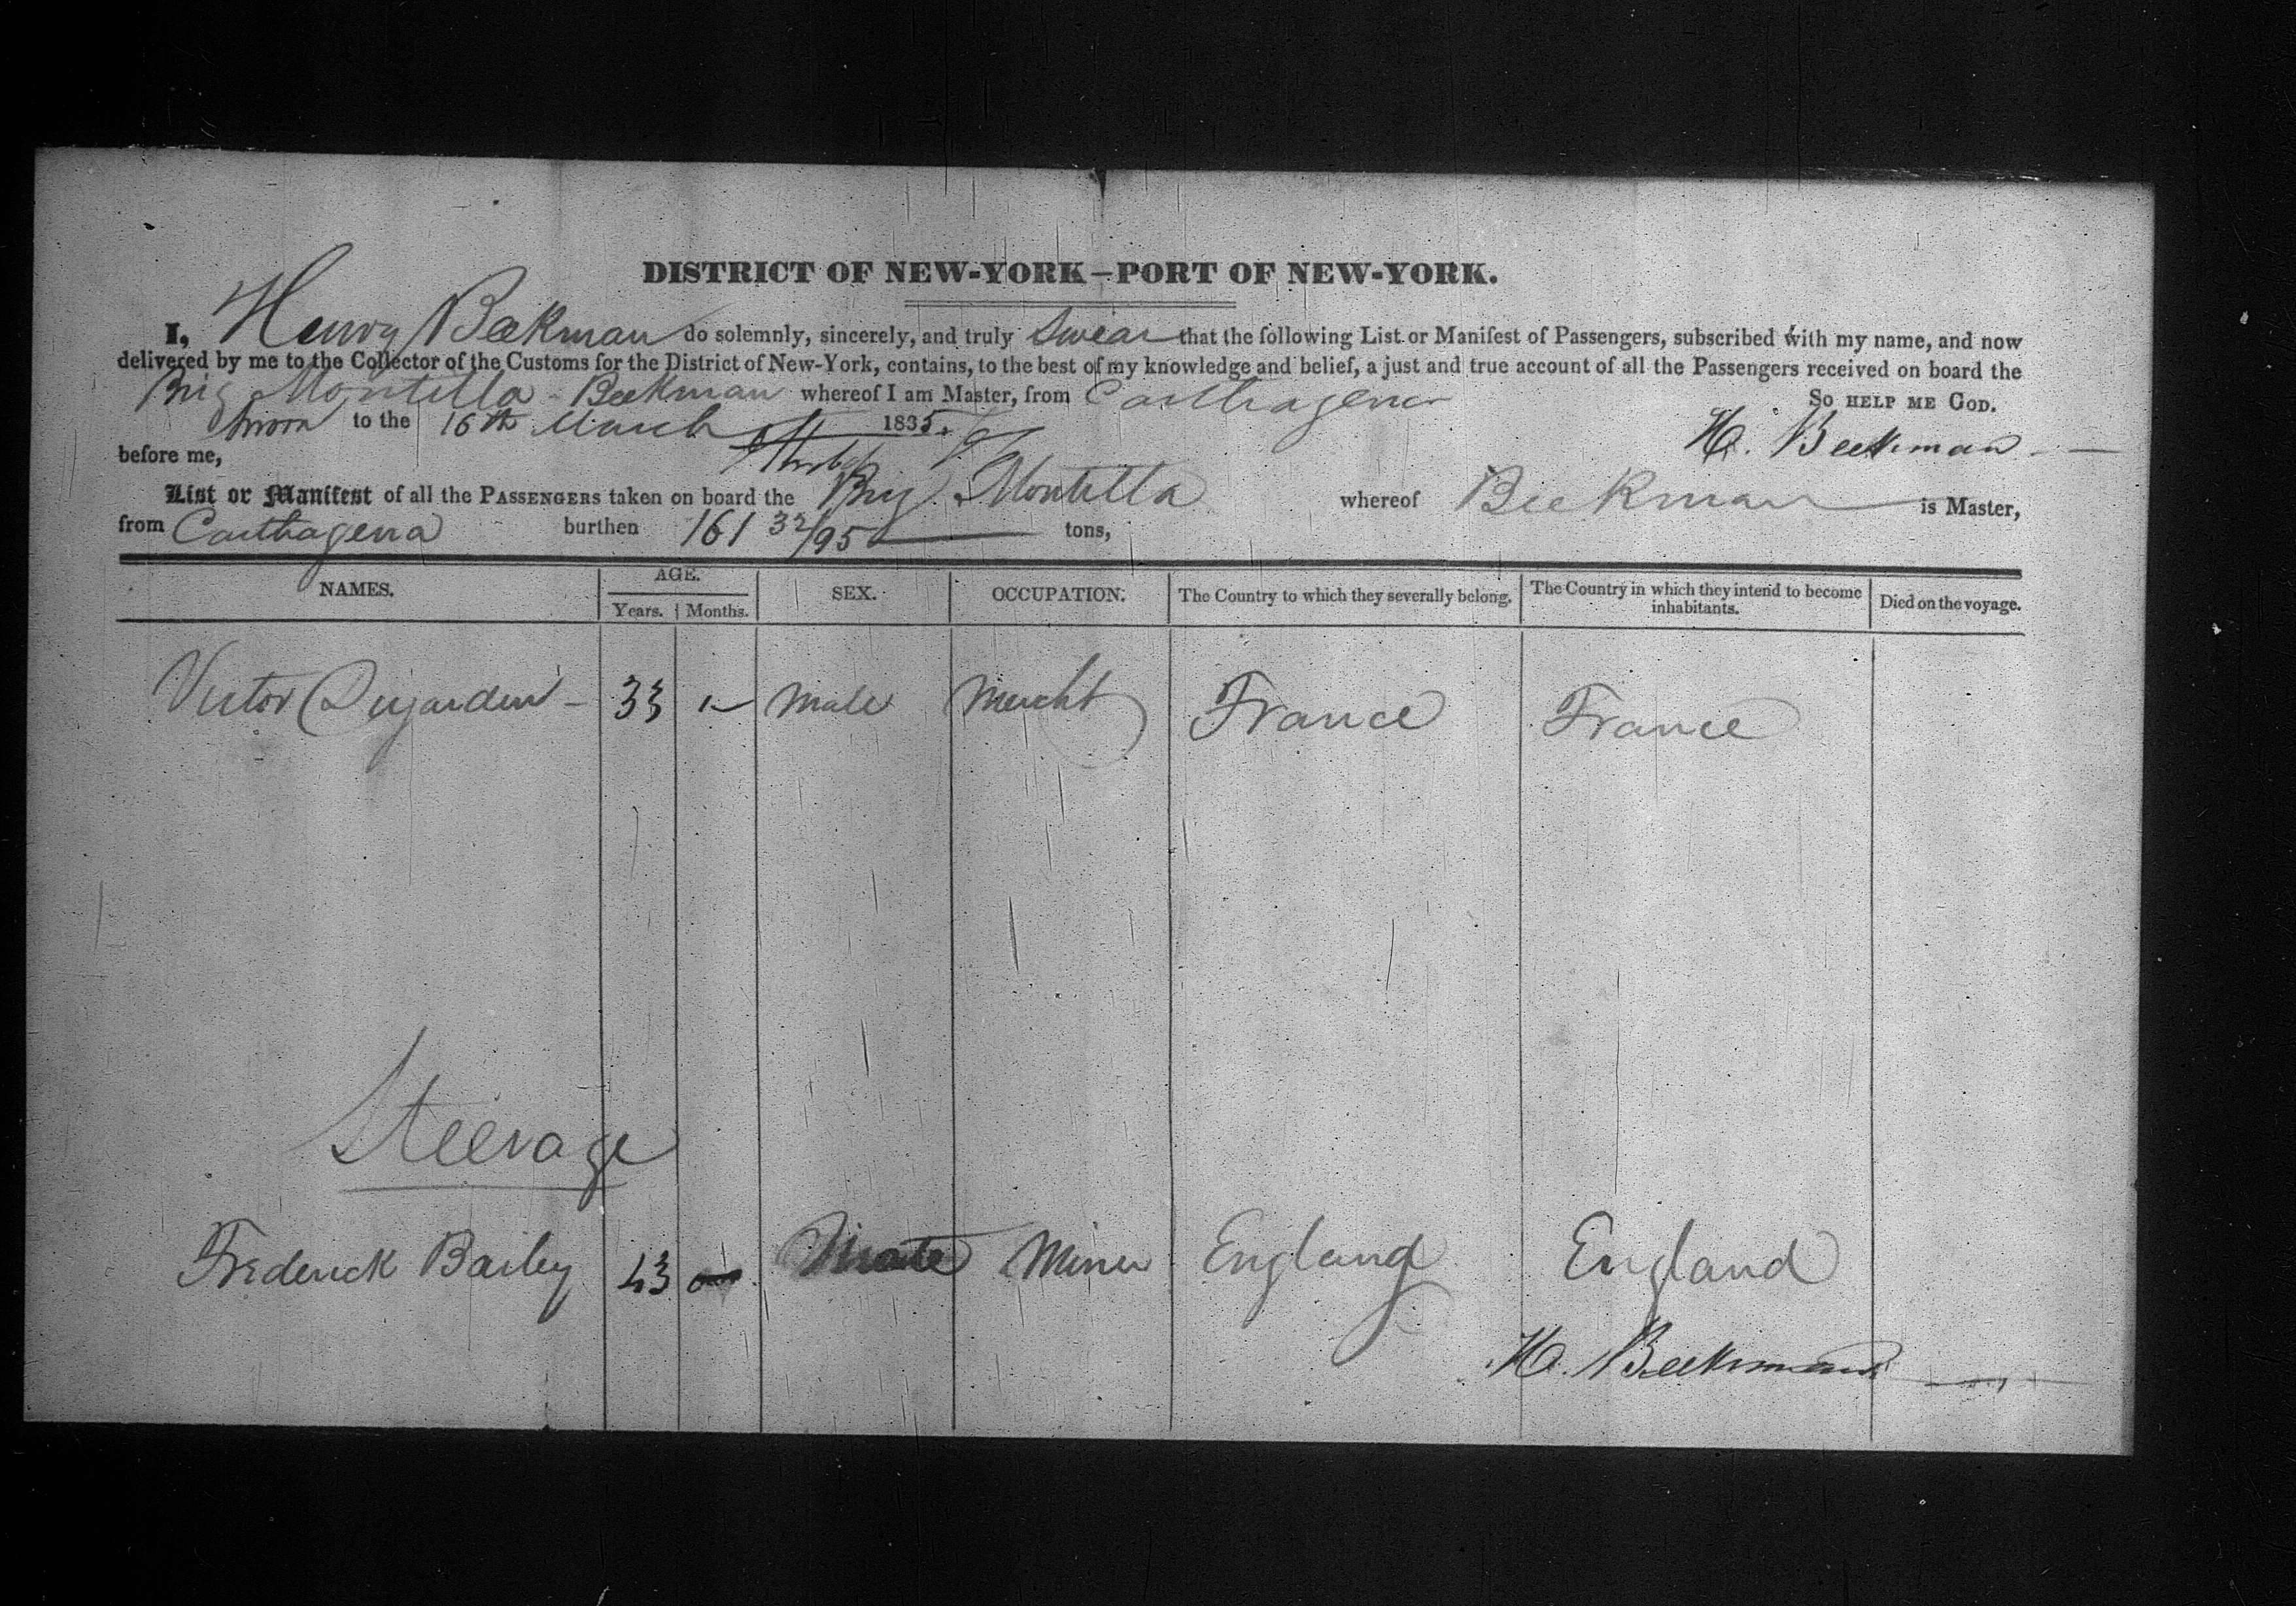 DISTRICT OF NEW-YORK—PORT OF NEW-YORK.
I, Henry Beekman do solemnly, sincerely, and truly Swear that the following List or Manifest of Passengers, subscribed with my name, and now
delivered by me to the Collector of the Customs for the District of New-York, contains, to the best of my knowledge and belief, a just and true account of all the Passengers received on board the
Brig Montilla - Beekman whereof I am Master, from Carthagena So HELP ME GOD.
Sworn to the 16th March 1835. H. Beekman
before me,
List or Manifest of all the PASSENGERS taken on board the Brig Montilla whereof Beekman is Master,
from Carthagena burthen 161 32/95 tons,
NAMES. AGE. SEX. OCCUPATION. The Country to which they severally belong. The Country in which they intend to become inhabitants. Died on the voyage.
Years. Months.
Victor Dujardin - 33 Male Mercht France France
Steerage
Frederick Bailey 43 Male Miner England England
H. Beekman